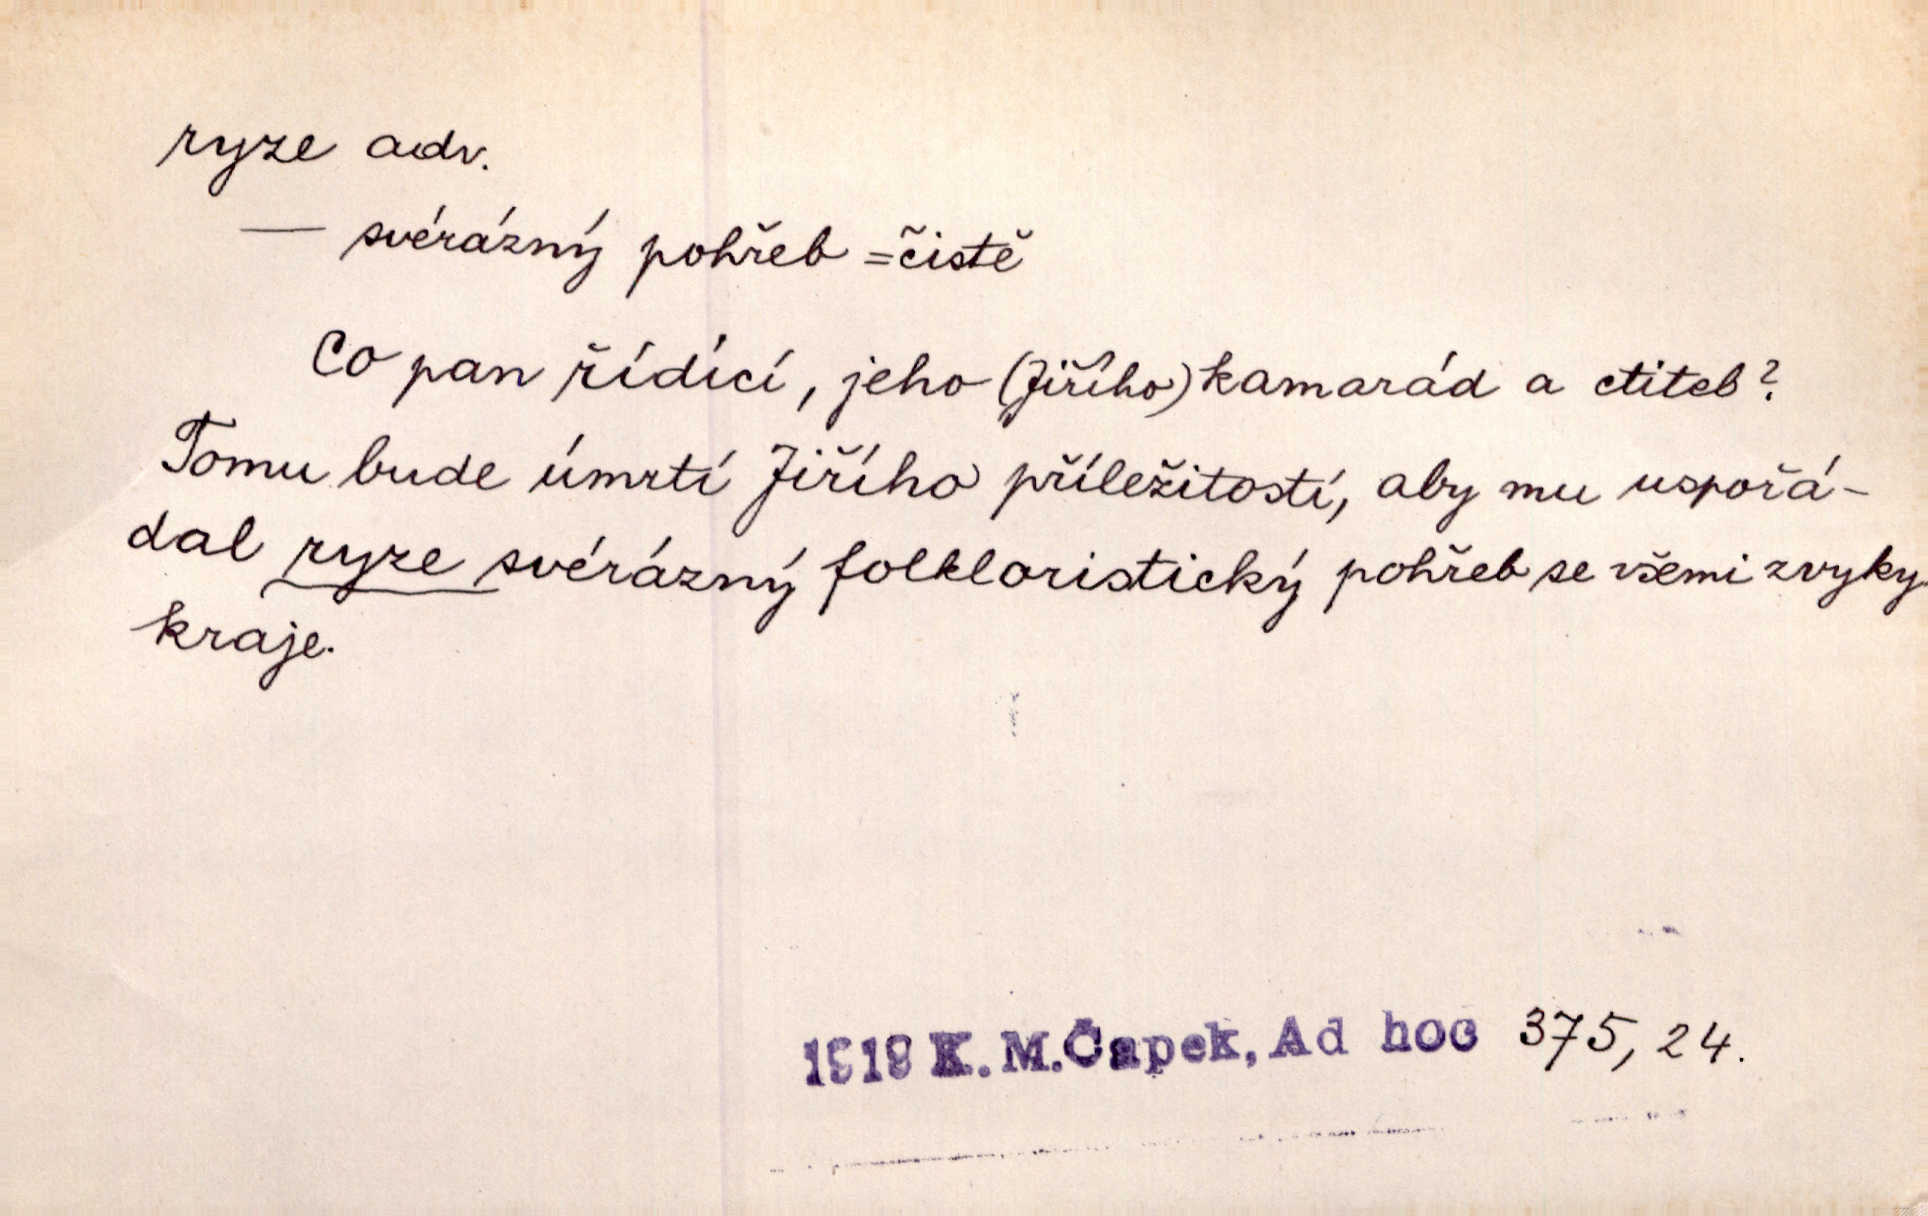 ryze adv.
— svérázný pohřeb = čistě
Co pan řídící, jeho (Jiřího) kamarád a ctitel?
Tomu bude úmrtí Jiřího příležitostí, aby mu uspořá-
dal ryze svérázný folkloristický pohřeb se všemi zvyky
kraje.
1919 K. M. Čapek, Ad hoc 375, 24.